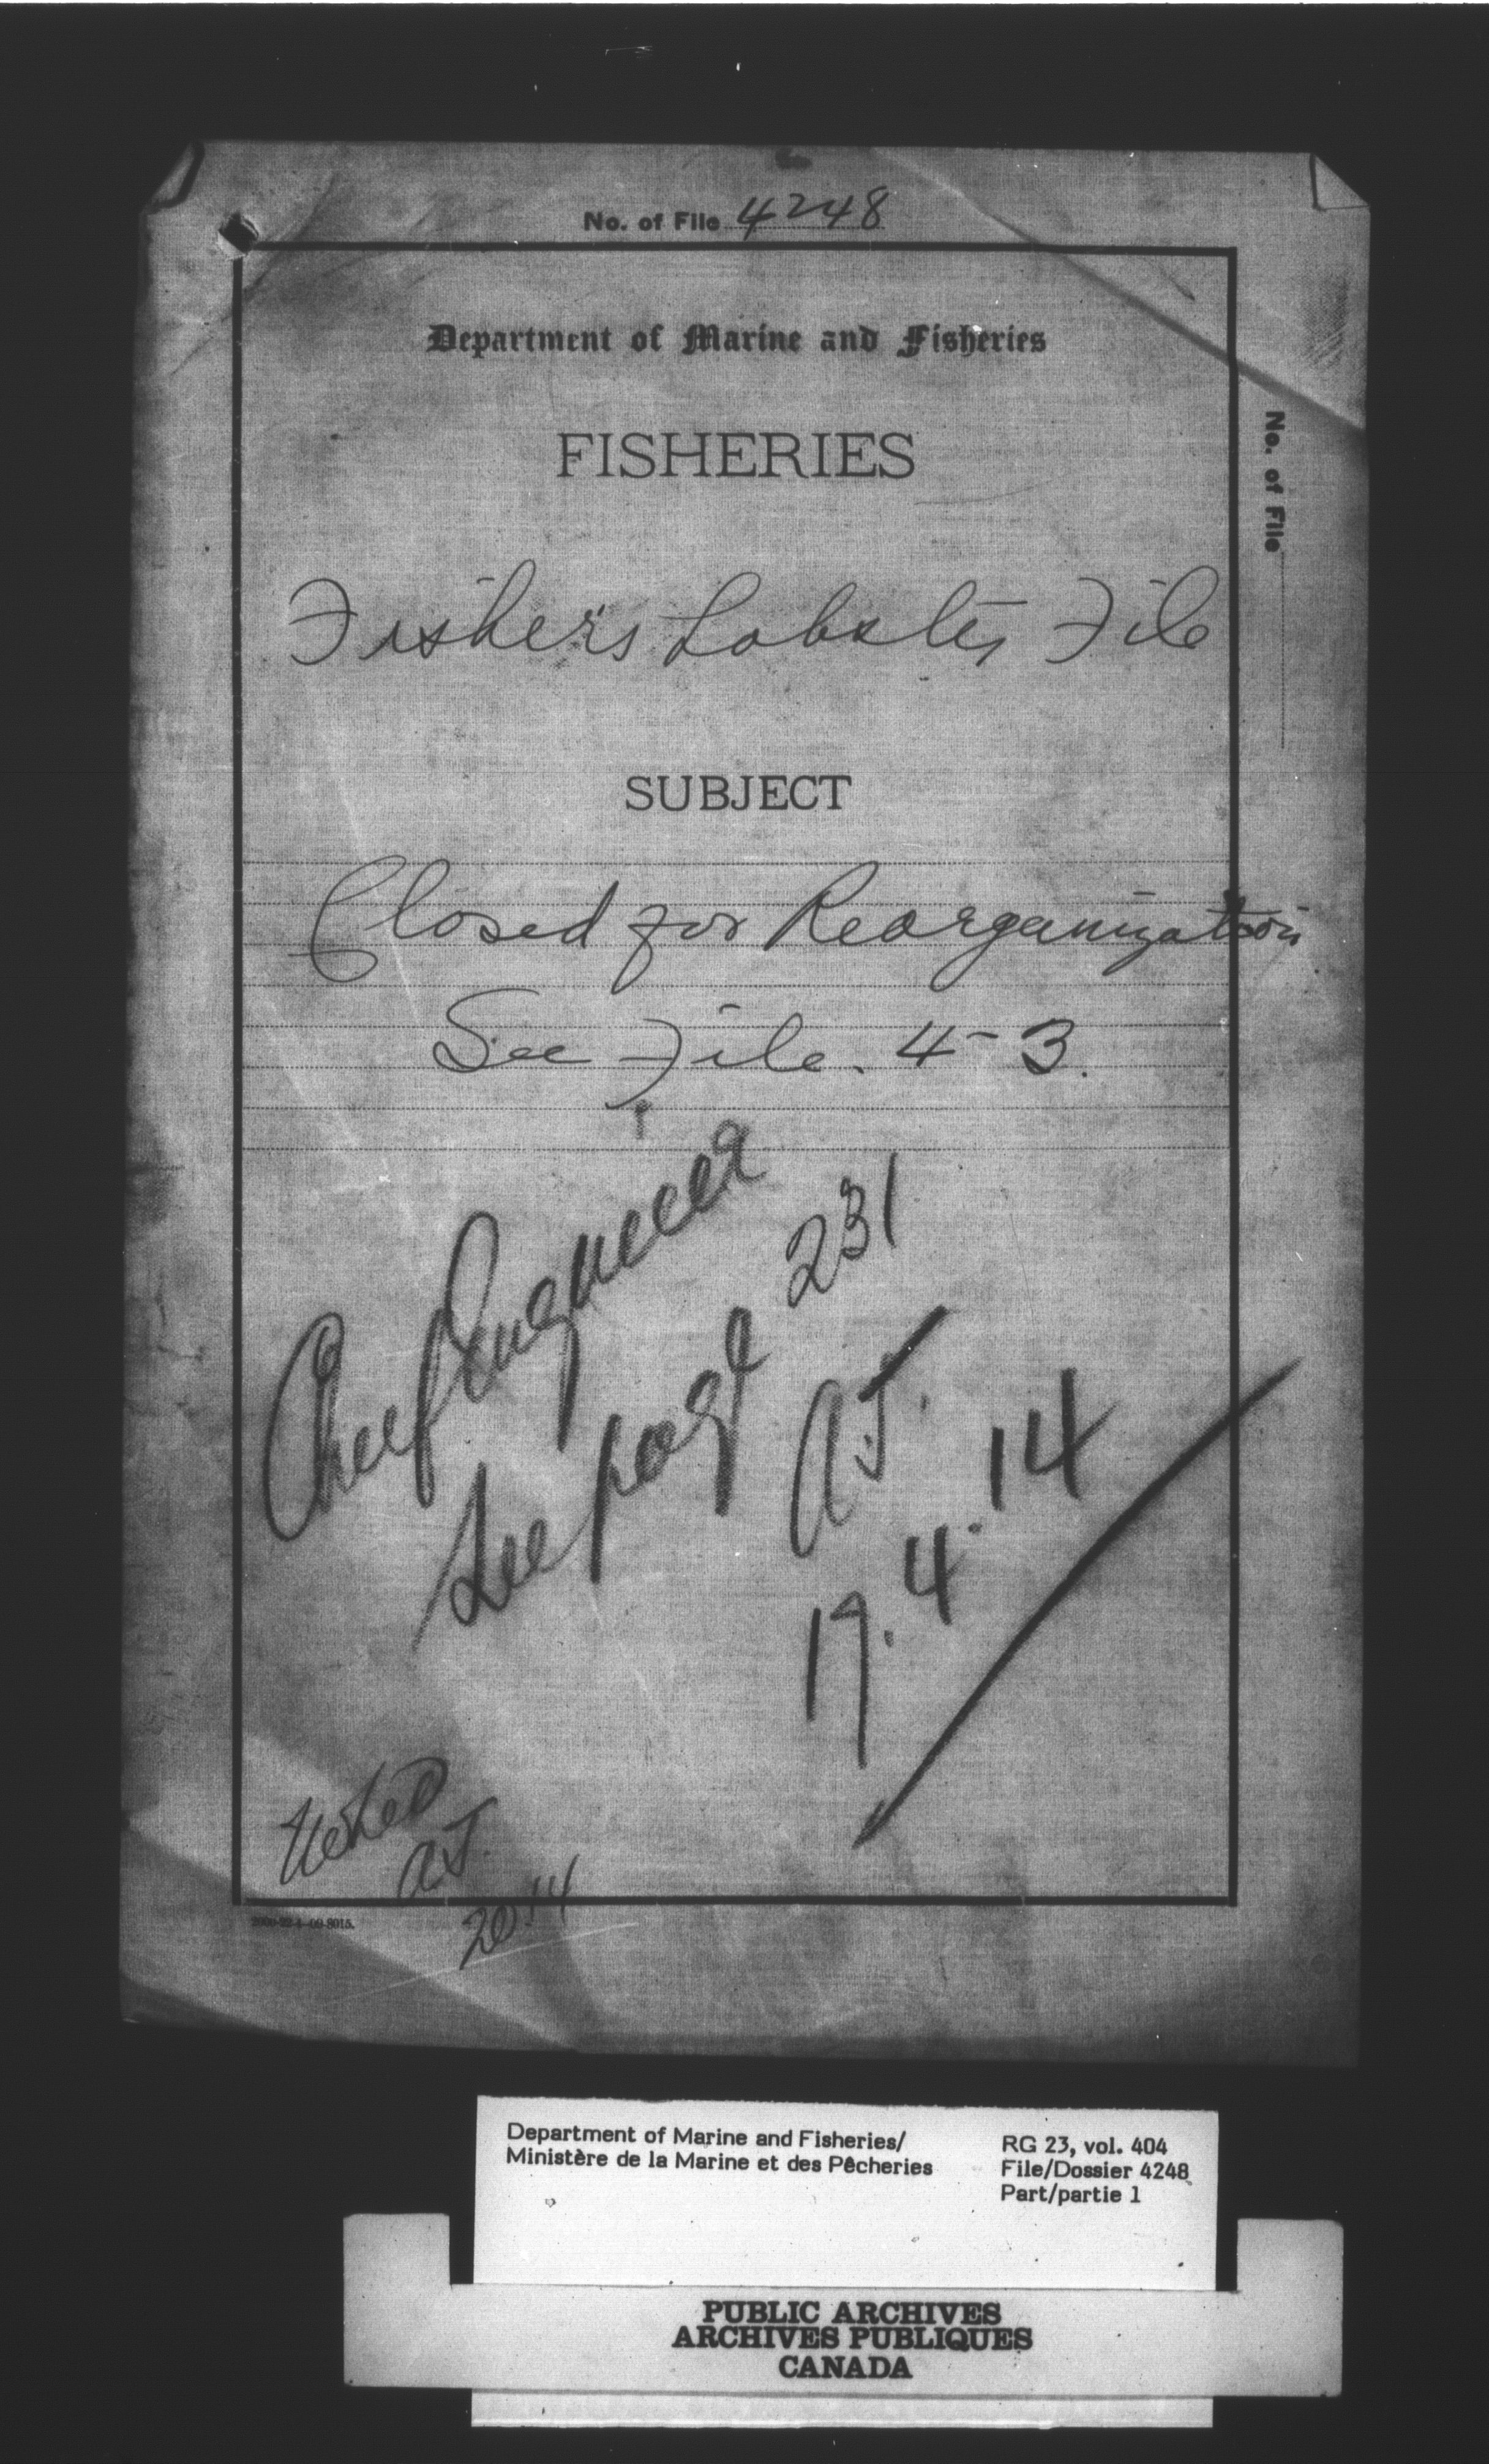 No. of File 4248
Department of Marine and Fisheries
FISHERIES
No. of File
Fisher's Lobster File
SUBJECT
Closed for Reorganization
See File. 4-3.
Chief Engineer
See page 231
A.J.
17.4.14
Noted
A.J.
20.4
Department of Marine and Fisheries/
Ministère de la Marine et des Pêcheries
RG 23, vol. 404
File/Dossier 4248
Part/partie 1
PUBLIC ARCHIVES
ARCHIVES PUBLIQUES
CANADA